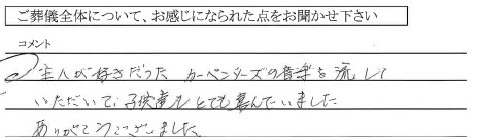 ご葬儀全体について、お感じになられた点をお聞かせ下さい
コメント
主人が好きだった カーペンターズの音楽を流して
いただいて、子供達もとても喜んでいました
ありがとうございました。